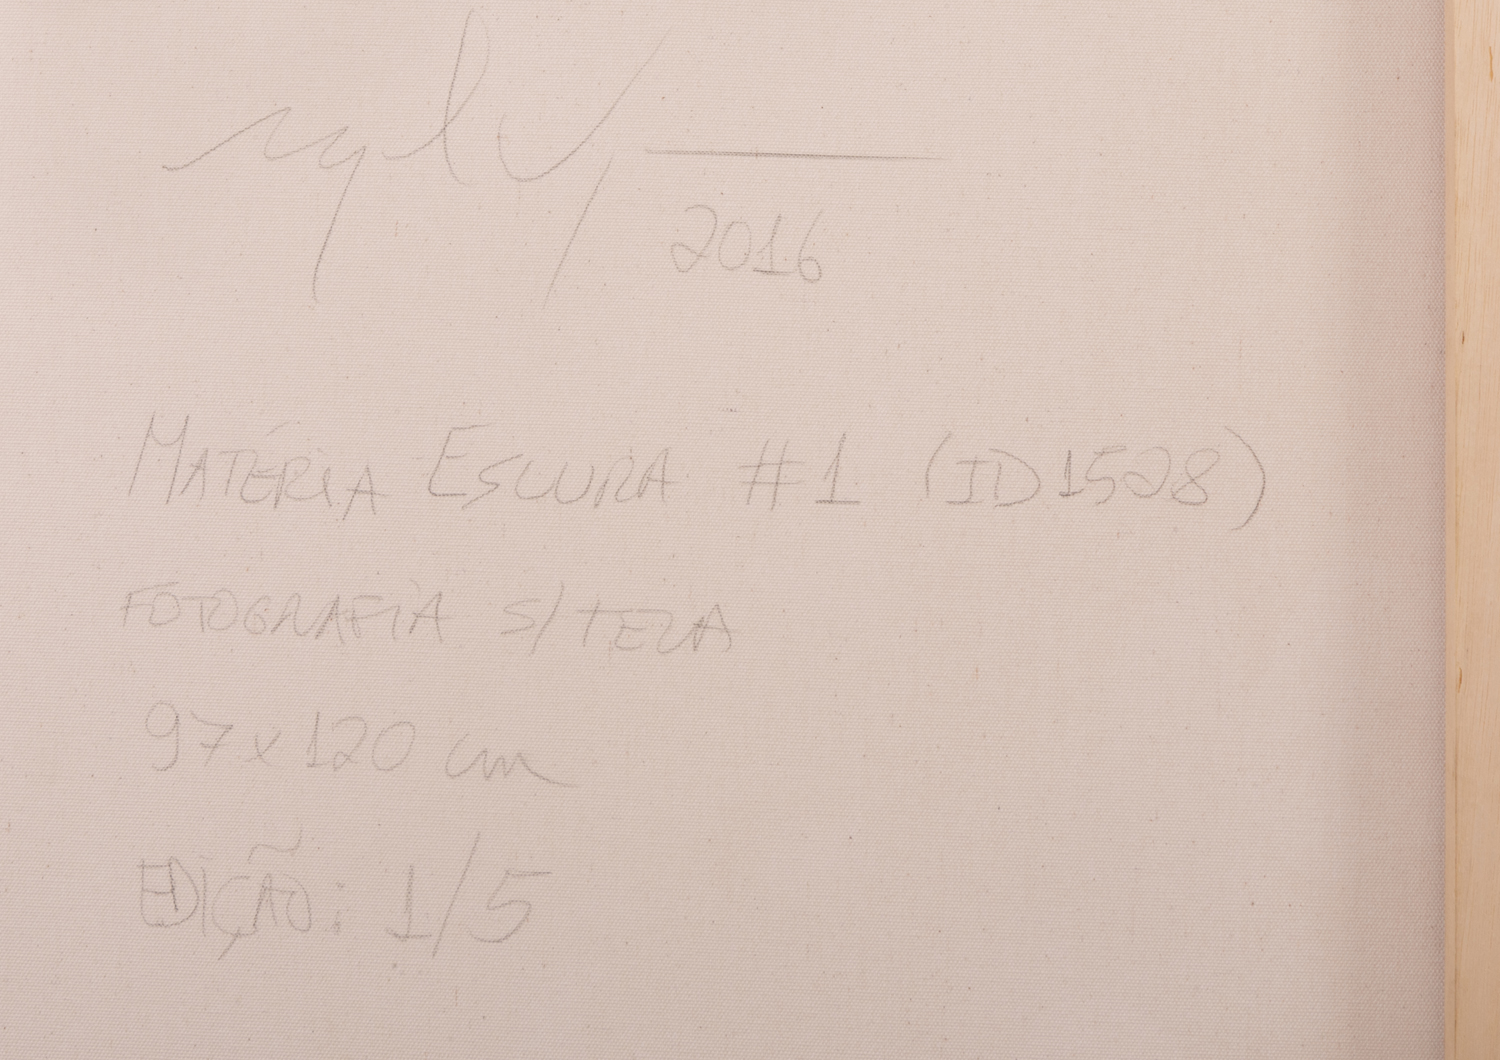 2016
MATÉRIA ESCURA #1 (ID1528)
FOTOGRAFIA S/TELA
97x120 cm
EDIÇÃO: 1/5